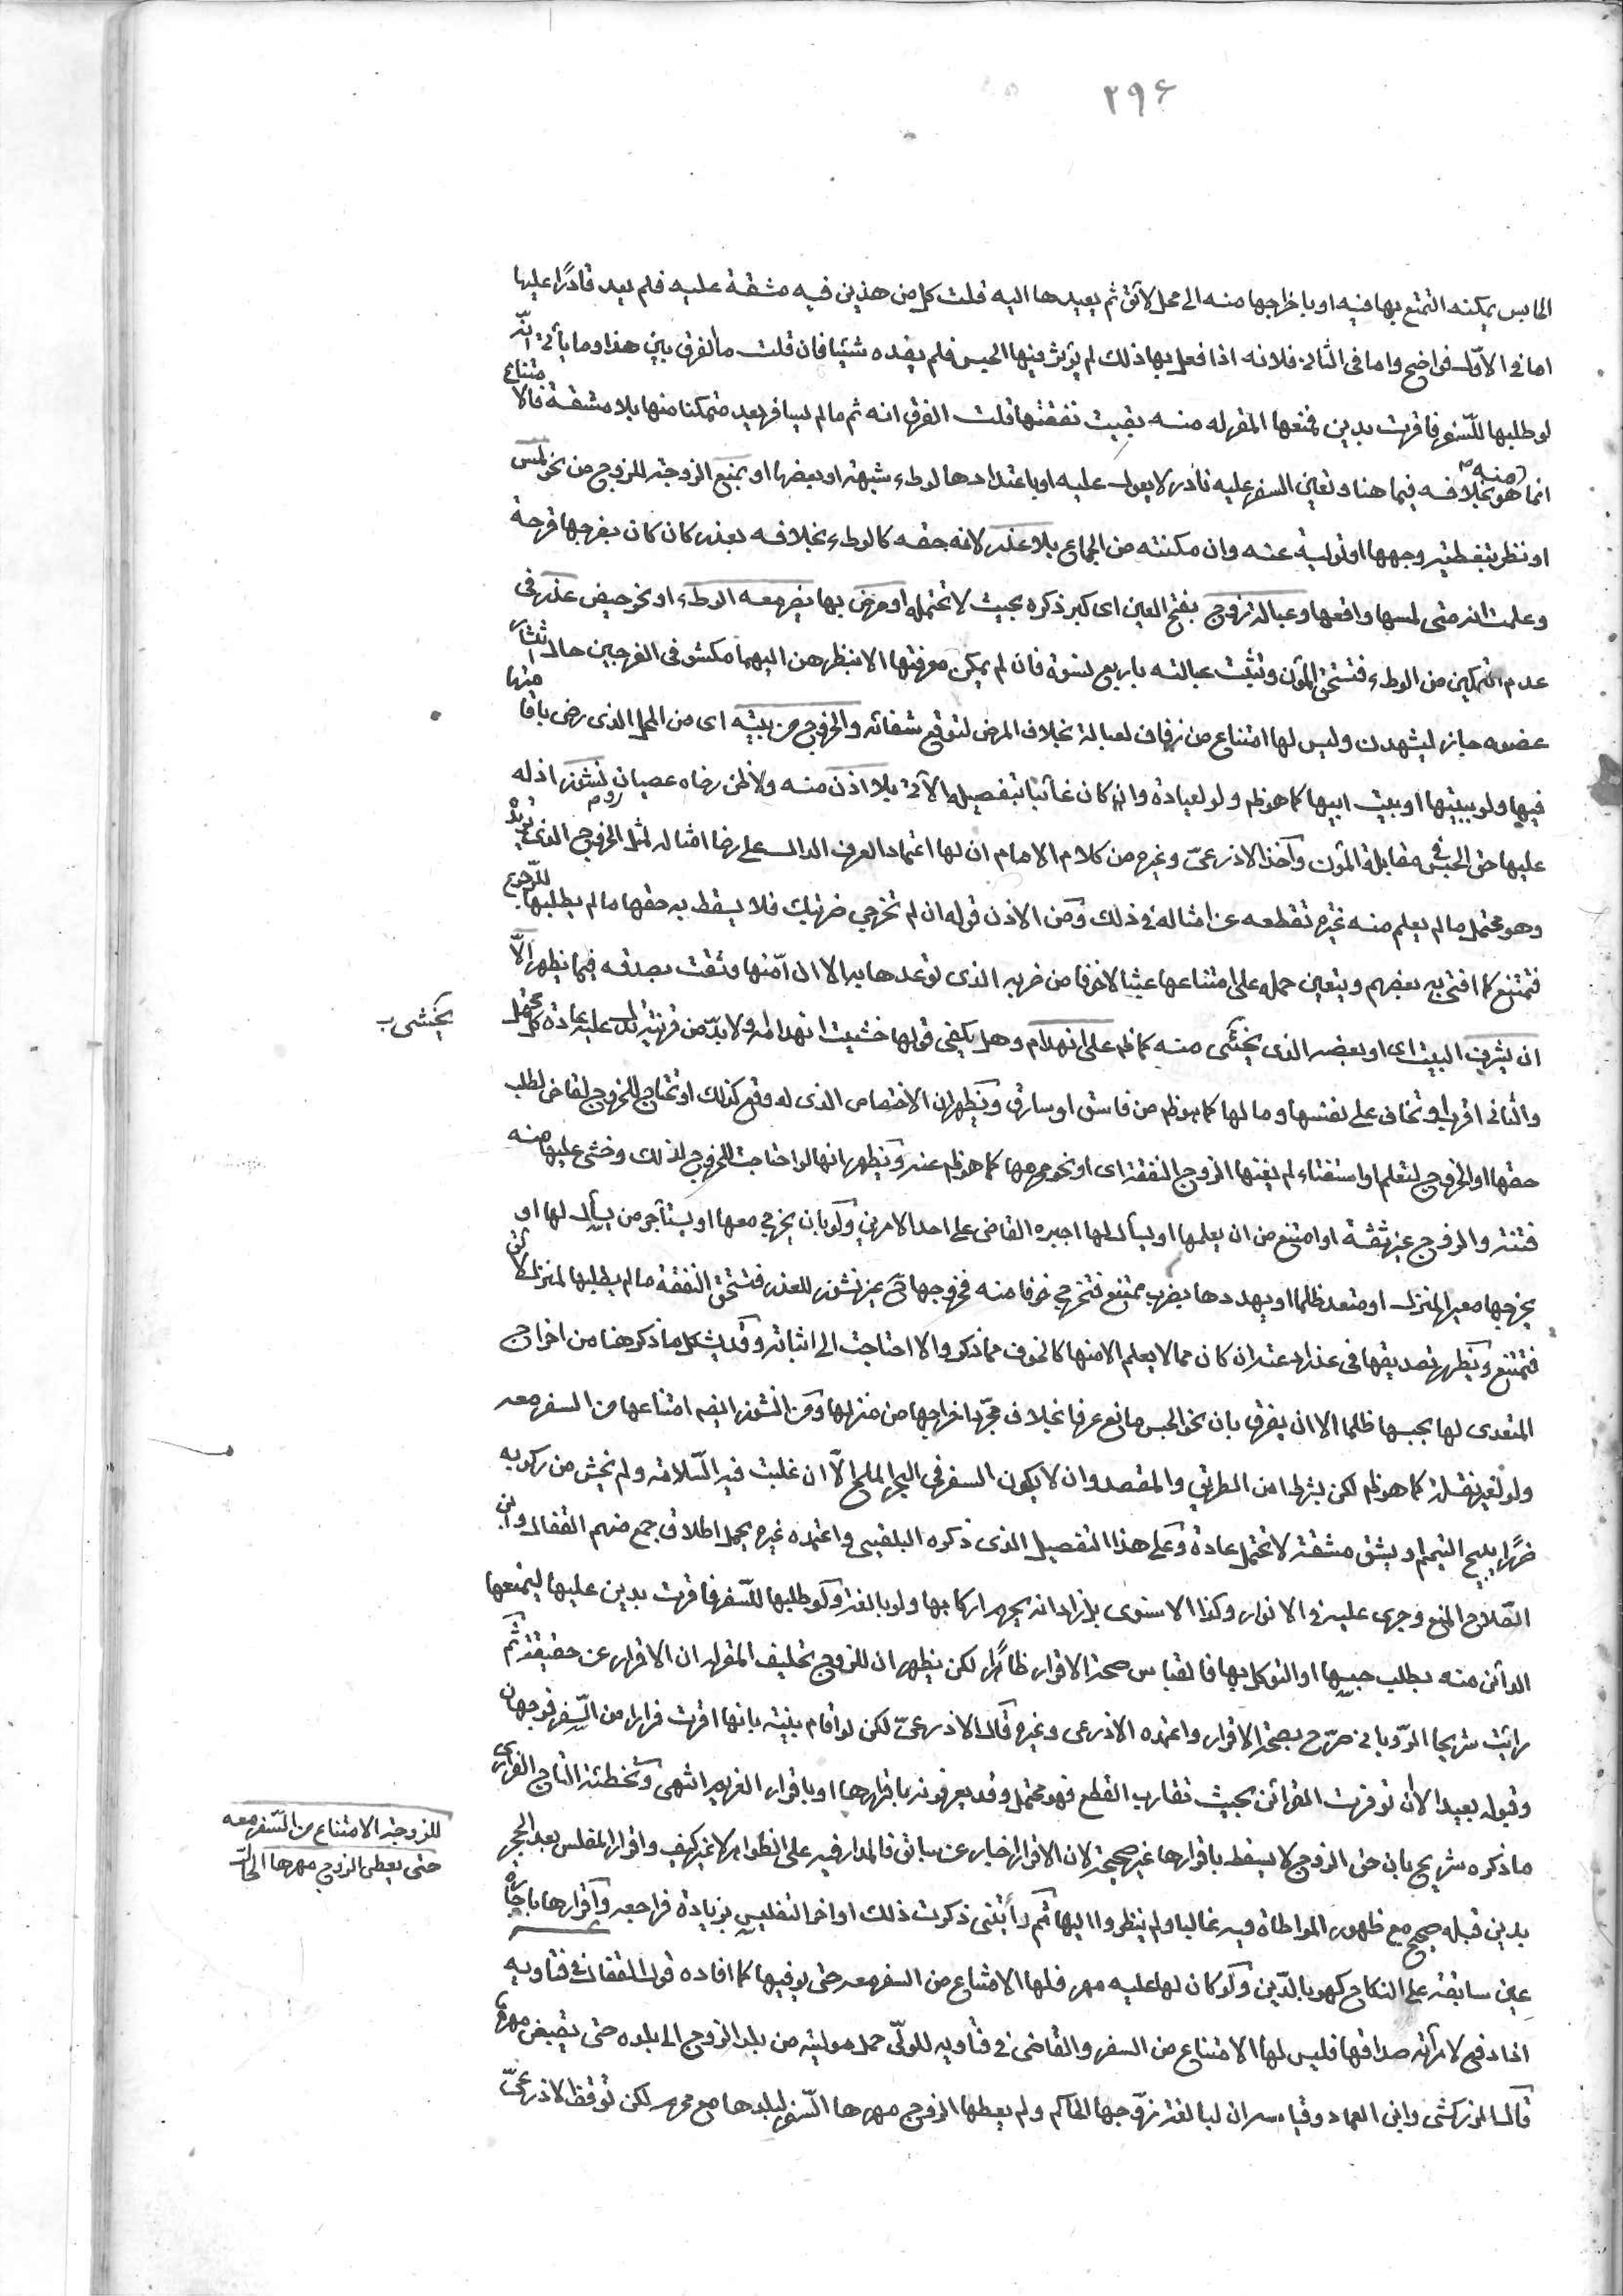 ٢٩٦
الحابس يمكنه التمتع بها فيه او باخراجها منه الى محل لائق ثم يعيدها اليه قلت كل من هذين فيه مشقة عليه فلم يعد قادرًا عليها
اما في الأول فواضح واما في الثاني فلانه اذا فعل بها ذلك لم يؤثر فيها الحبس فلم يفده شيئا فان قلت ما الفرق بين هذا وما يأتي انّه
لو طلبها للسّفر فاقرت بدين فمنعها المقر له منه بقيت نفقتها قلت الفرق انه ثم ما لم يسافر يعد متمكنا منها بلا مشقة فالامتناع
انما هو منه بخلافه فيما هنا وتعين السفر عليه نادر لا يعول عليه او باعتدادها لوطء شبهة او بعضها او بمنع الزوجة للزوج من نحو لمس
او نظر بتغطية وجهها او تولية عنه وان مكنته من الجماع بلا عذر لانه حقه كالوطء بخلافه بعذر كان كان بفرجها قرحة
وعلمت انه متى لمسها واقعها وعبالة زوج بفتح العين اى كبر ذكره بحيث لا تحتمله او مرض بها يضر معه الوطء او نحو حيض عذر في
عدم التمكين من الوطء فتستحق المؤن وتثبت عبالته باربع نسوة فان لم يمكن معرفتها الا بنظرهن اليهما مكشوفى الفرجين حال انتشار
عضوه جاز ليشهدن وليس لها امتناع من زفاف لعبالة بخلاف المرض لتوقع شفائه والخروج من بيته اى من المحل الذى رضى باقامتها
فيها ولو ببيتها او بيت ابيها كما هو ظم ولو لعيادة وان كان غائبا بتفصيله الآتي بلا اذن منه ولا ظن رضاه عصيان ونشوز اذ له
عليها حق الحبس في مقابلة المؤن وأخذ الاذرعىّ وغيره من كلام الامام ان لها اعتماد العرف الدال على رضا امثاله لمثل الخروج الذى تريده
وهو محتمل ما لم يعلم منه غيرة تقطعه عن امثاله في ذلك ومن الاذن قوله ان لم تخرجى ضربتك فلا يسقط به حقها ما لم يطلبها للرّجوع
فتمتنع كما افتى به بعضهم ويتعين حمله على امتناعها عبثا لا خوفا من ضربه الذى توعدها به الا ان امّنها وثقت بصدقه فيما يظهر الّا
ان يشرف البيت اى او بعضه الذى يخشى منه كما ظم على انهدام وهل يكفى قولها خشيت انهدامه او لا بدّ من قرينة تدل عليه عادة كل محتمل
والثانى اقرب او تخاف على نفسها ومالها كما هو ظم من فاسق او سارق ويظهر ان الاختصاص الذى له وقع كذلك او تحتاج للخروج لقاض لطلب
حقها او الخروج لتعلم او استفتاء لم يغنها الزوج الثقة اى او نحو محرمها كما هو ظم عنه ويظهر انها لو احتاجت للخروج لذلك وخشى عليها منه
فتنة والزوج غير ثقة او امتنع من ان يعلمها او يسأل لها اجبره القاضى على احد الامرين ولو بان يخرج معها او يستأجر من يسأل لها او
يخرجها معير المنزل او متعد ظلما او يهددها بضرب ممتنع فتخرج خوفا منه فخروجها ح غير نشوز للعذر فتستحق النفقة ما لم يطلبها لمنزل لائق
فتمتنع ويظهر تصديقها في عذر ادعته ان كان مما لا يعلم الا منها كالخوف مما ذكر والا احتاجت الى اثباته وقد يشكل ما ذكر هنا من اخراج
المتعدى لها بحبسها ظلما الا ان يفرق بان نحو الحبس مانع عرفا بخلاف مجرّد اخراجها من منزلها ومن النشوز ايضه امتناعها من السفر معه
ولو لغير نقلة كما هو ظم لكن بشرط امن الطريق والمقصد وان لا يكون السفر في البحر الملح الّا ان غلبت فيه السّلامة ولم يخش من ركوبه
ضررًا يبيح التيمم او يشق مشقة لا تحتمل عادة وعلى هذا التفصيل الذى ذكره البلقينى واعتمده غيره يحمل اطلاق جمع منهم القفال وابن
الصّلاح المنع وجرى عليه في الانوار وكذا الاسنوى بل زاد انه يحرم اركابها ولو بالغة ولو طلبها للسّفر فاقرت بدين عليها ليمنعها
الدائن منه بطلب حبسها او التوكل بها فالقياس صحة الاقرار ظاهرًا لكن يظهر ان للزوج تحليف المقر له ان الاقرار عن حقيقة ثم
رأيت شريحا الرّويانى صرّح بصحة الاقرار واعتمده الاذرعى وغيره قال الاذرعىّ لكن لو اقام بينة بانها اقرت فرارا من السّفر فوجهان
وقبوله بعيد الا ان توفرت القرائن بحيث تقارب القطع فهو محتمل وقد يعرفونه باقرارها او باقرار الغريم انتهى وتخطئة التاج الفزارى
ما ذكره شريح بان حق الزوج لا يسقط باقرارها غير صحيحة لان الاقرار اخبار عن سابق فالمدار فيه على الظواهر لا غير كيف واقرار المفلس بعد الحجر
بدين قبله صحيح مع ظهور المواطاة فيه غالبا ولم ينظروا اليها ثم رأيتنى ذكرت ذلك اواخر التفليس بزيادة فراجعه واقرارها باجارة
عين سابقة على النكاح كهو بالدّين ولو كان لها عليه مهر فلها الامتناع من السفر معه حتى يوفيها كما افاده قول القفال في فتاويه
اذا دفع لامرأته صداقها فليس لها الامتناع من السفر والقاضى في فتاويه للولىّ حمل موليته من بلد الزوج الى بلده حتى يقبض مهرها
قال الزركشى وابن العماد وقياسه ان لبالغة زوّجها الحاكم ولم يعطها الزوج مهرها السّفر لبلدها مع محرم لكن توقف الاذرعىّ
يخشى ب
للزوجة الامتناع من السّفر معه
حتى يعطى الزوج مهرها الحالّ